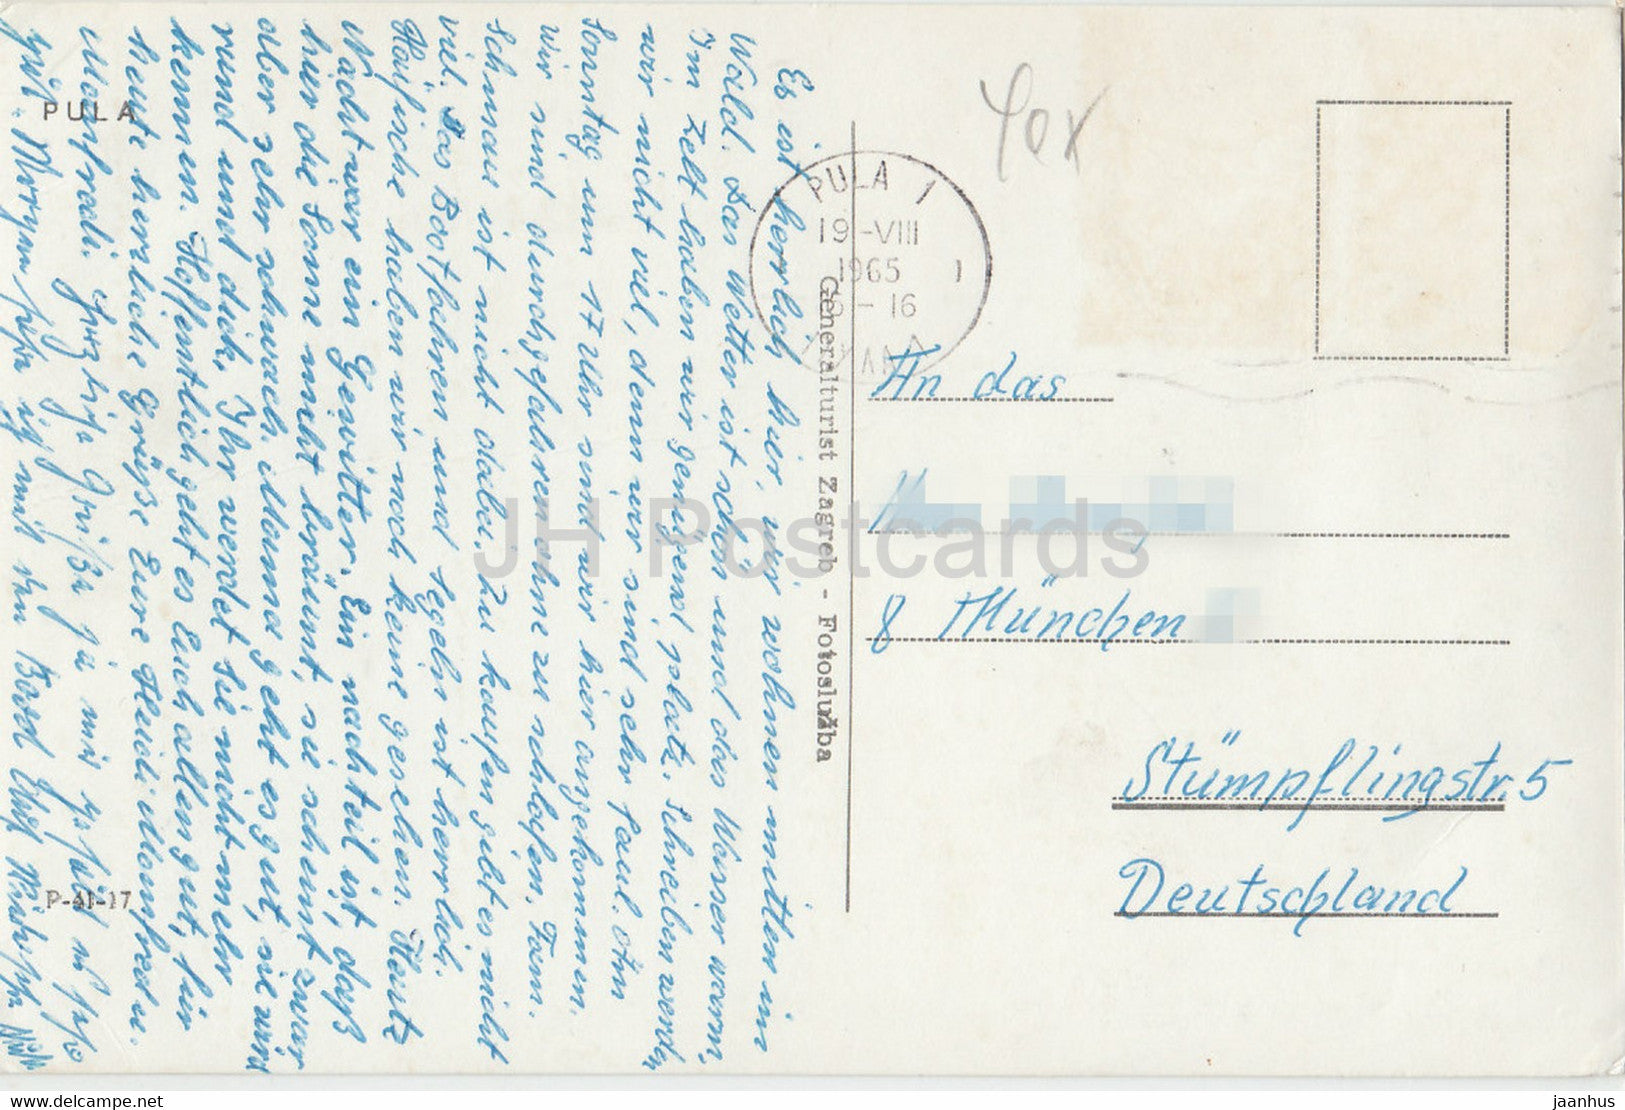 PULA
P-41-17
Es ist herrlich hier, wir wohnen mitten im
Wald. Das Wetter ist schön und das Wasser warm,
Im Zelt haben wir genügend platz. Schreiben werdn
wir nicht viel, denn wir sind sehr faul. Am
Sonntag um 17 Uhr sind wir hier angekommen.
Wir sind durchgefahren ohne zu schlafen. Tom.
Schmau ist nicht dabei. Zu kaufen gibt es nicht
viel. Das Bootfahren und Segeln ist herrlich.
Haifische haben wir noch keine gesehen. Heute
Nacht war ein Gewitter. Ein nachteil ist, daß
hier die Sonne nicht bräunt, sie scheint zwar
aber sehr schwach. Mama geht es gut, sie wird
rund und dick, Ihr werdet sie nicht mehr
kennen. Hoffentlich geht es Euch allen gut, für
Heute herzliche Grüße Eure Heidi Manfred u.
Manfredi.
Generalturist Zagreb - Fotoslužba
40x
PULA 1
19-VIII
1965
- 16
1
An das
8 München
Stümpflingstr. 5
Deutschland
JH Postcards
www.delcampe.net
jaanhus